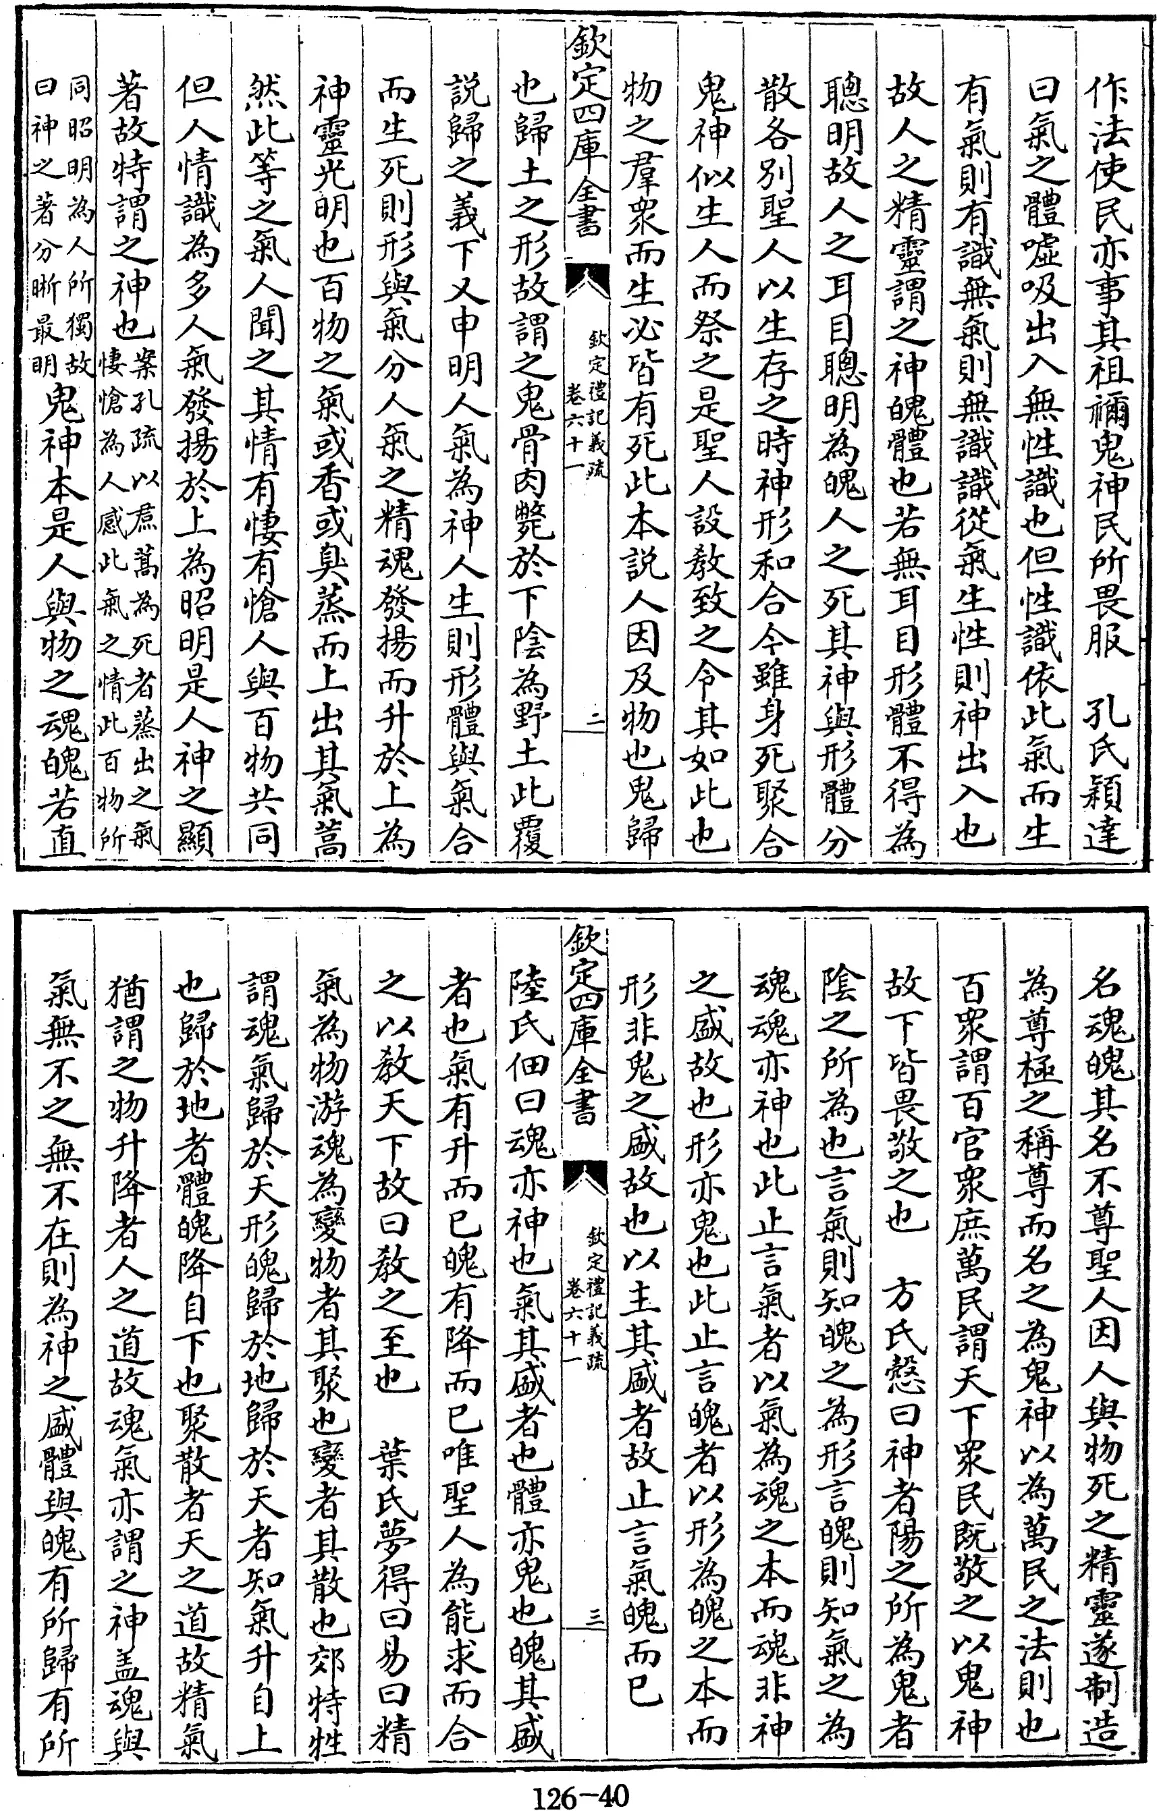 作法使民亦事其祖禰鬼神民所畏服　孔氏穎達
曰氣之體噓吸出入無性識也但性識依此氣而生
有氣則有識無氣則無識識從氣生性則神出入也
故人之精靈謂之神魄體也若無耳目形體不得為
聰明故人之耳目聰明為魄人之死其神與形體分
散各別聖人以生存之時神形和合今雖身死聚合
鬼神似生人而祭之是聖人設教致之令其如此也
物之羣衆而生必皆有死此本説人因及物也鬼歸
欽定四庫全書
欽定禮記義疏
卷六十一
二
也歸土之形故謂之鬼骨肉斃於下陰為野土此覆
説歸之義下又申明人氣為神人生則形體與氣合
而生死則形與氣分人氣之精魂發揚而升於上為
神靈光明也百物之氣或香或臭蒸而上出其氣蒿
然此等之氣人聞之其情有悽有愴人與百物共同
但人情識為多人氣發揚於上為昭明是人神之顯
著故特謂之神也
案孔疏以焄蒿為死者蒸出之氣
悽愴為人感此氣之情此百物所
同昭明為人所獨故
曰神之著分晰最明
鬼神本是人與物之魂魄若直
名魂魄其名不尊聖人因人與物死之精靈遂制造
為尊極之稱尊而名之為鬼神以為萬民之法則也
百衆謂百官衆庶萬民謂天下衆民既敬之以鬼神
故下皆畏敬之也　方氏慤曰神者陽之所為鬼者
陰之所為也言氣則知魄之為形言魄則知氣之為
魂魂亦神也此止言氣者以氣為魂之本而魂非神
之盛故也形亦鬼也此止言魄者以形為魄之本而
形非鬼之盛故也以主其盛者故止言氣魄而已
欽定四庫全書
欽定禮記義疏
卷六十一
三
陸氏佃曰魂亦神也氣其盛者也體亦鬼也魄其盛
者也氣有升而已魄有降而已唯聖人為能求而合
之以教天下故曰教之至也　葉氏夢得曰易曰精
氣為物游魂為變物者其聚也變者其散也郊特牲
謂魂氣歸於天形魄歸於地歸於天者知氣升自上
也歸於地者體魄降自下也聚散者天之道故精氣
猶謂之物升降者人之道故魂氣亦謂之神盖魂與
氣無不之無不在則為神之盛體與魄有所歸有所
126-40